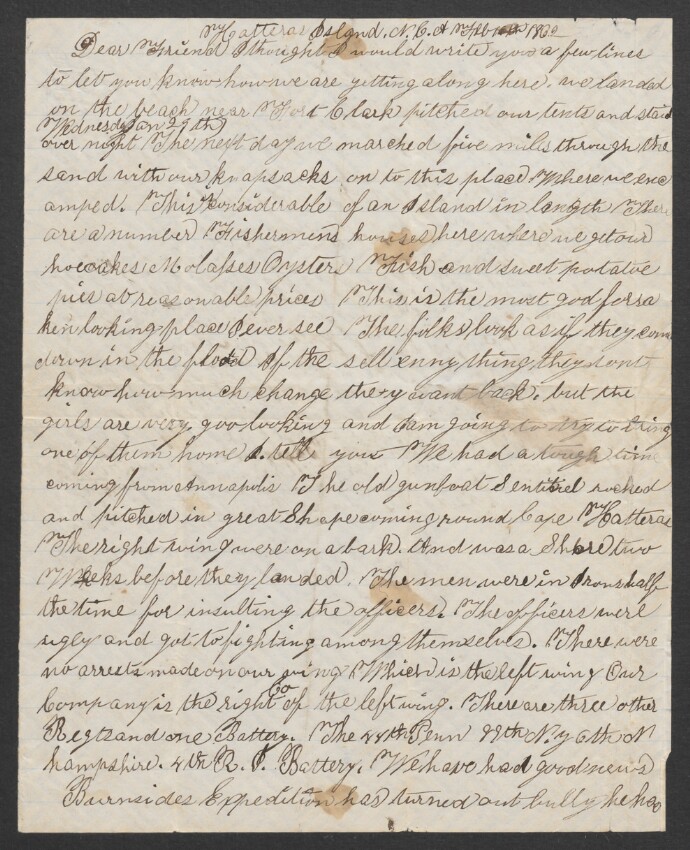 Hatteras Island. N. C. Feb 1862
Dear Friend I thought I would write you a few lines
to let you know how we are getting along here. we landed
on the beach near Fort Clark pitched our tents and staid
Wednesday Jan 29th
over night The next day we marched five miles through the
sand with our knapsacks on to this place Where we enc
amped. This considerable of an Island in length There
are a number Fishermens houses here where we get our
hoecakes Molasses Oysters Fish and sweet potatoe
pies at reasonable prices This is the most god forsa
ken looking place I ever see The folks look as if they come
down in the flood If the sell enny thing they dont
know how much change they want back. but the
girls are very goo looking and I am going to try to bring
one of them home I tell you We had a tough time
coming from Annapolis The old gunboat Sentinel rocked
and pitched in great Shape coming round Cape Hatteras
The right wing were on a bark. And was a Shore two
Weeks before they landed. The men were in Irons half
the time for insulting the officers. The officers were
ugly and got to fighting among themselves. There were
no arrests made on our wing Which is the left wing Our
Company is the right Co of the left wing. There are three other
Regts and one Battery. The 48th Penn 99th N. y 6th N
hampshire. 4th R. I. Battery. We have had good news
Burnsides Expedition has turned out bully he has